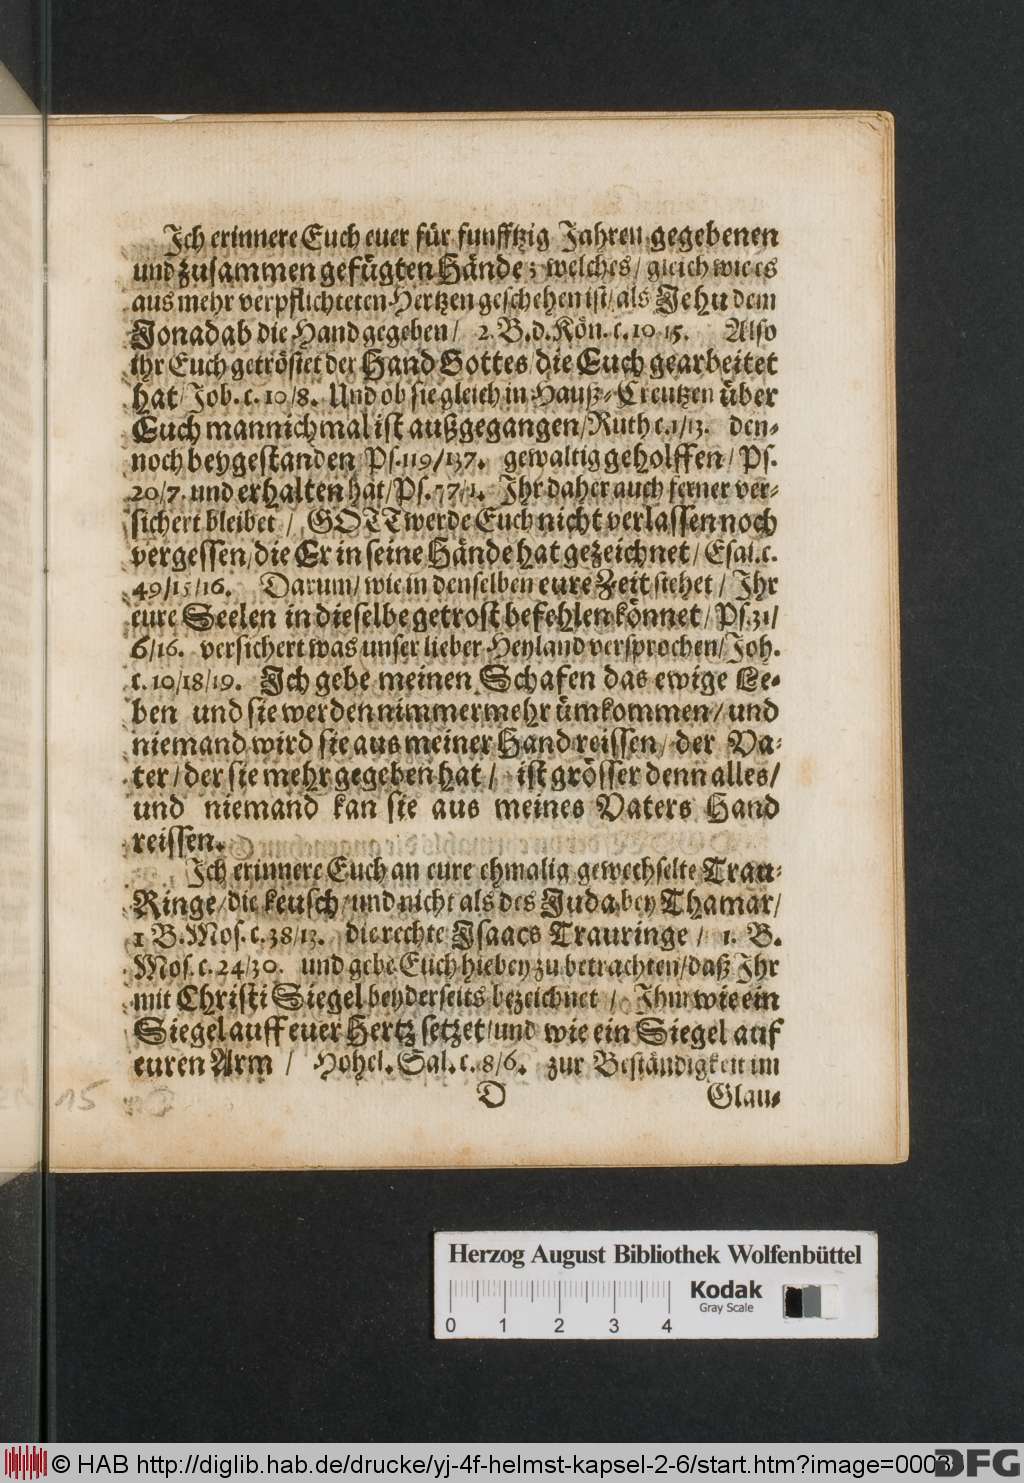 Ich erinnere Euch euer für funfftzig Jahren gegebenen
und zusammen gefügten Hände; welches/ gleich wie es
aus mehr verpflichteten Hertzen geschehen ist/ als Jehu dem
Jonadab die Hand gegeben/ 2. B. d. Kön. c. 10 15. Also
ihr Euch getröstet der Hand Gottes/ die Euch gearbeitet
hat/ Job. c. 10/8. Und ob sie gleich in Hauß-Creutzen über
Euch mannichmal ist außgegangen/ Ruth c. 1/13. den-
noch beygestanden Ps. 119/137. gewaltig geholffen/ Ps.
20/7. und erhalten hat/ Ps. 77/1. Ihr daher auch ferner ver-
sichert bleibet/ GOTT werde Euch nicht verlassen noch
vergessen/ die Er in seine Hände hat gezeichnet/ Esai. c.
49/15/16. Darum/ wie in denselben eure Zeit stehet/ Ihr
eure Seelen in dieselbe getrost befehlen könnet/ Ps. 31/
6/16. versichert was unser lieber Heyland versprochen/ Joh.
c. 10/18/19. Ich gebe meinen Schafen das ewige Le-
ben und sie werden nimmermehr ümkommen/ und
niemand wird sie aus meiner Hand reissen/ der Va-
ter/ der sie mehr gegeben hat/ ist grösser denn alles/
und niemand kan sie aus meines Vaters Hand
reissen.
Ich erinnere Euch an eure ehmalig gewechselte Trau-
Ringe/ die keusch/ und nicht als des Juda bey Thamar/
1 B. Mos. c. 38/13. die rechte Isaacs Trauringe/ 1. B.
Mos. c. 24/30. und gebe Euch hiebey zu betrachten/ daß Ihr
mit Christi Siegel beyderseits bezeichnet/ Ihm wie ein
Siegel auff euer Hertz setzet/ und wie ein Siegel auf
euren Arm/ Hohel. Sal. c. 8/6. zur Beständigkeit im
D Glau-
15
Herzog August Bibliothek Wolfenbüttel
Kodak
Gray Scale
0 1 2 3 4
© HAB http://diglib.hab.de/drucke/yj-4f-helmst-kapsel-2-6/start.htm?image=0003
DFG